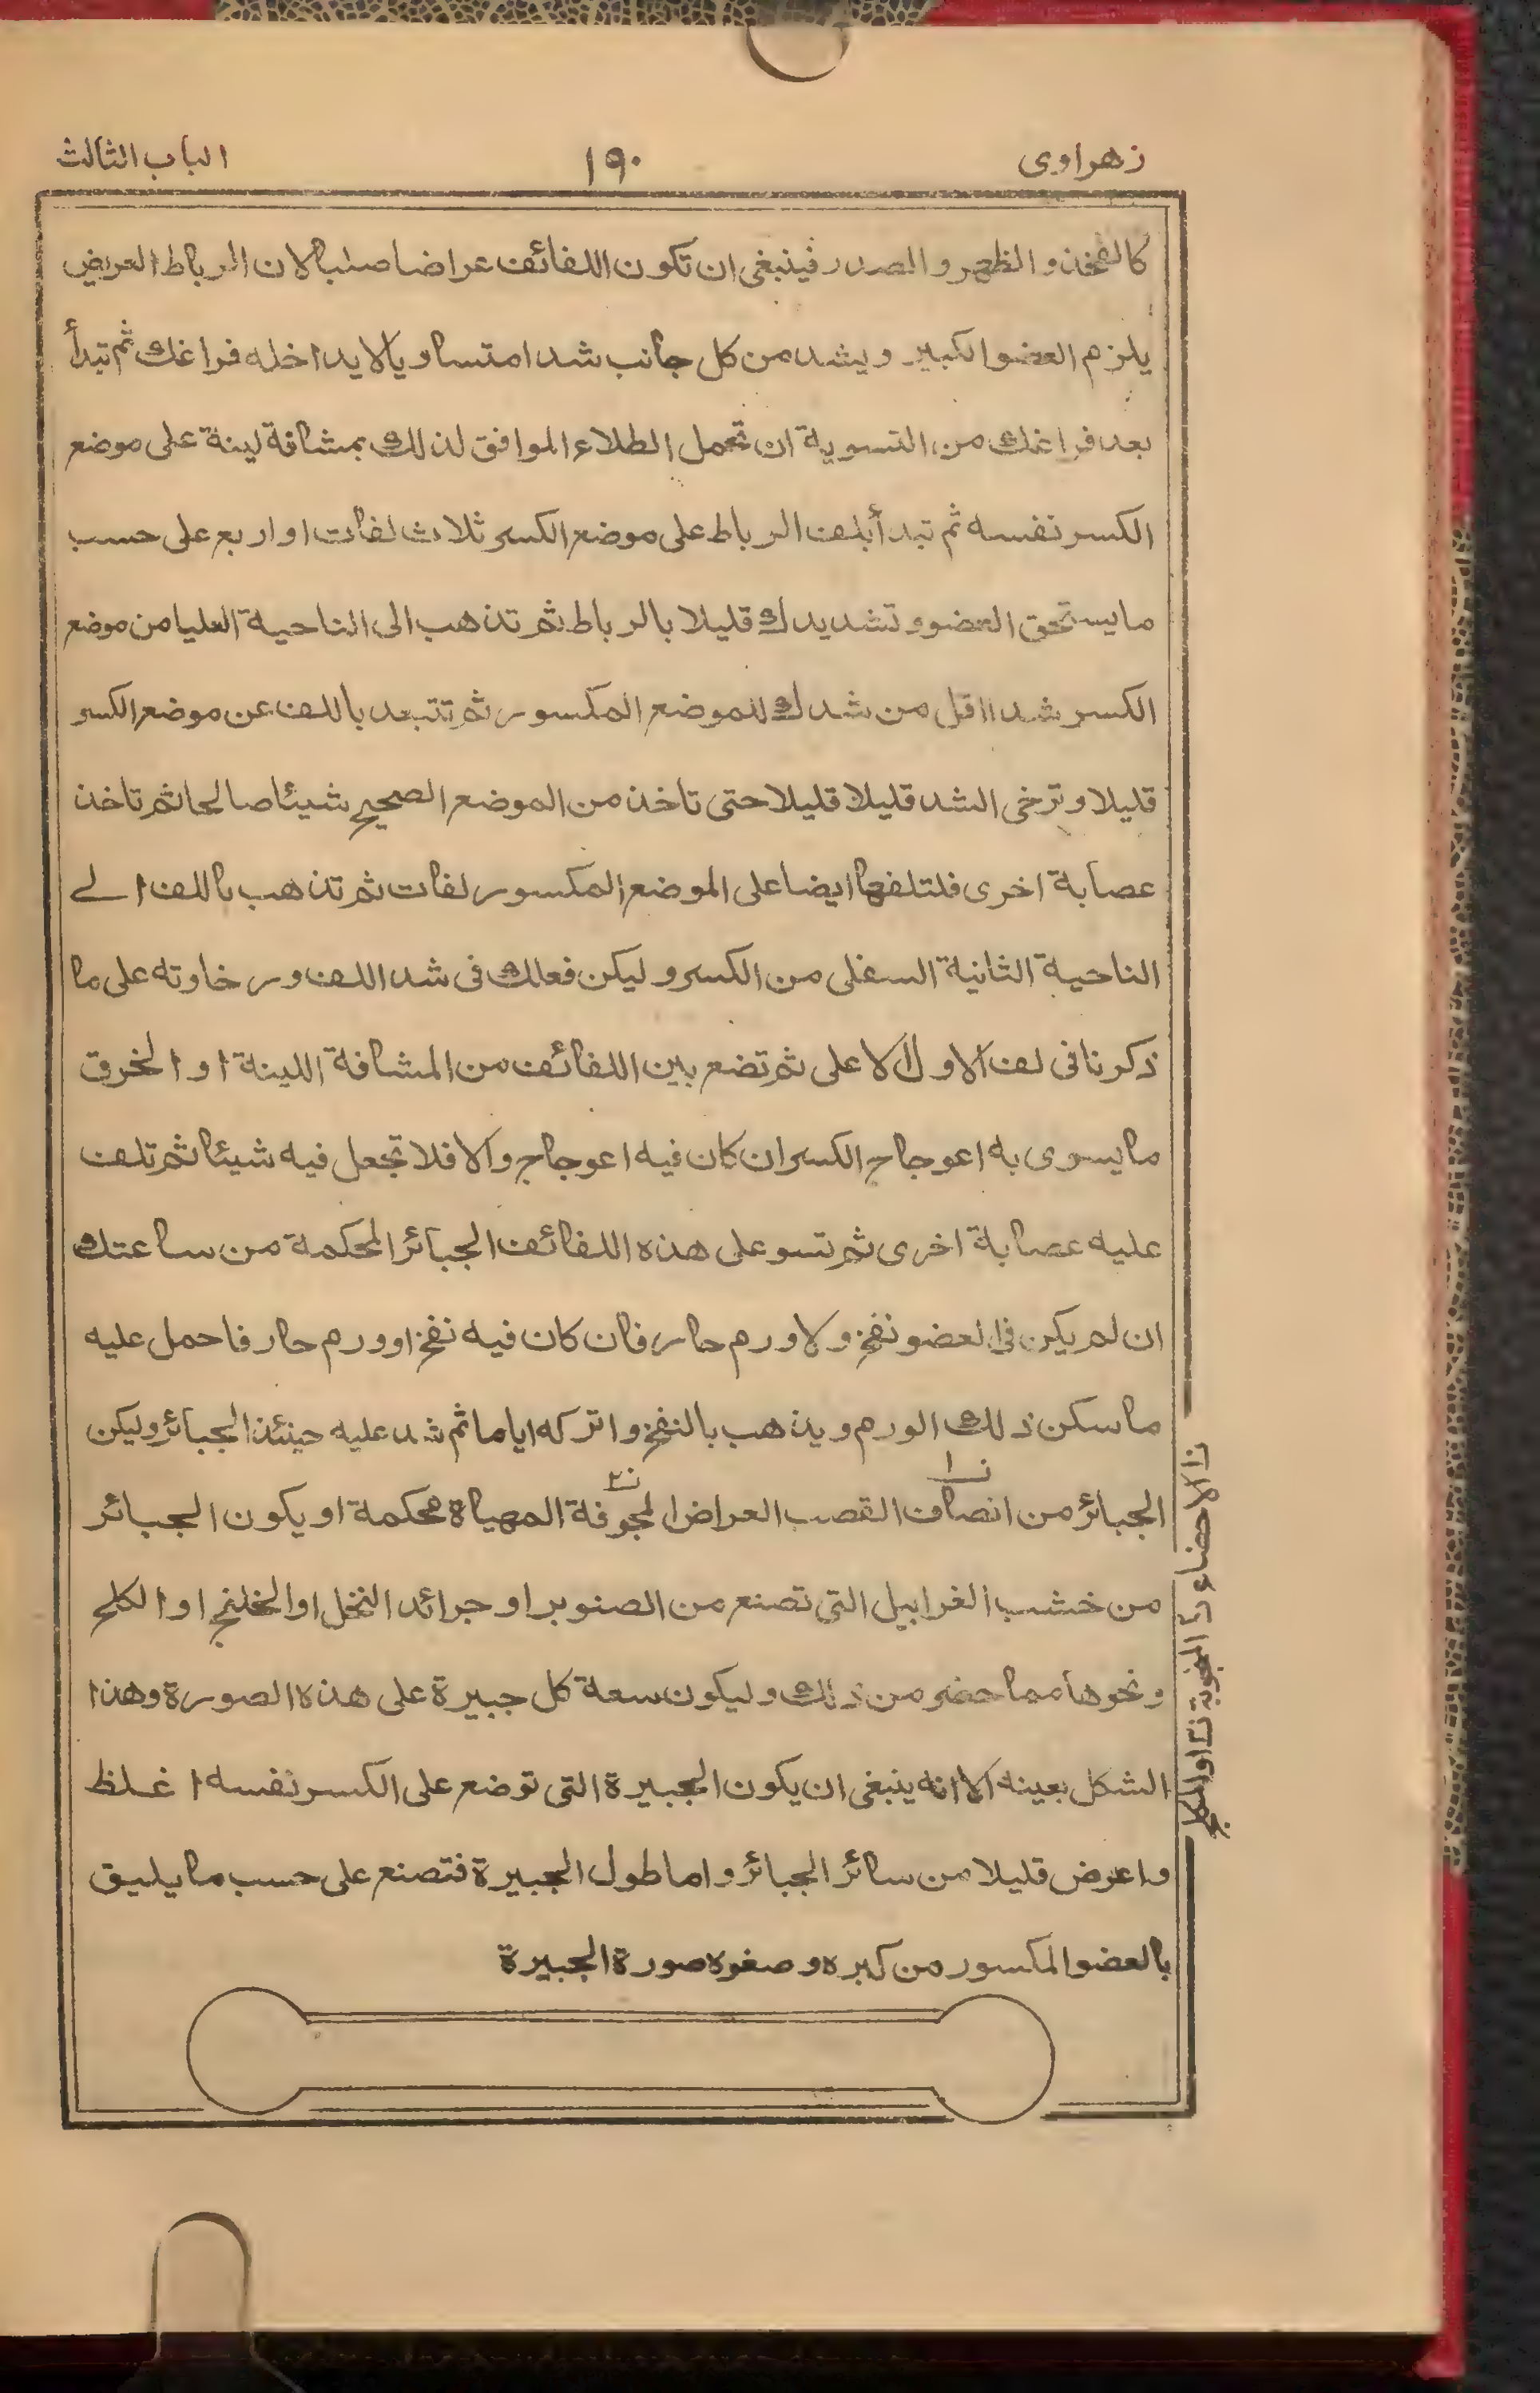 زهراوى ١٩٠ الباب الثالث
كالفخذ والظهر والصدر فينبغى ان تكون اللفائف عراضا صلبا لان الرباط العريض
يلزم العضو الكبير ويشد من كل جانب شدا متساويا لا يداخله فراغك ثم تبدأ
بعد فراغك من التسوية ان تحمل الطلاء الموافق لذلك بمشاقة لينة على موضع
الكسر نفسه ثم تبدأ بلف الرباط على موضع الكسر ثلاث لفات او اربع على حسب
ما يستحق العضو وتشد يدك قليلا بالرباط ثم تذهب الى الناحية العليا من موضع
الكسر شدا اقل من شدك للموضع المكسور ثم تتبعد باللف عن موضع الكسر
قليلا وترخى الشد قليلا قليلا حتى تاخذ من الموضع الصحيح شيئا صالحا ثم تاخذ
عصابة اخرى فلتلفها ايضا على الموضع المكسور لفات ثم تذهب باللف الے
الناحية الثانية السفلى من الكسر وليكن فعلك فى شد اللف ورخاوته على ما
ذكرنا فى لف الاول الاعلى ثم تضع بين اللفائف من المشاقة اللينة او الخرق
ما يسوى به اعوجاج الكسر ان كان فيه اعوجاج والا فلا تجعل فيه شيئا ثم تلف
عليه عصابة اخرى ثم تسو على هذه اللفائف الجبائر المحكمة من ساعتك
ان لم يكن فى العضو نفخ ولا ورم حار فان كان فيه نفخ او ورم حار فاحمل عليه
ما سكن ذلك الورم ويذهب بالنفخ واتركه اياما ثم شد عليه حينئذ الجبائر وليكن
الجبائر من انصاف القصب العراض المجوفة المهياة محكمة او يكون الجبائر
من خشب الغرابيل التى تصنع من الصنوبر او جرائد النخل او الخلنج او الكلح
ونحوها مما حضر من ذلك وليكون سعة كل جبيرة على هذه الصورة وهذا
الشكل بعينه الا انه ينبغى ان يكون الجبيرة التى توضع على الكسر نفسه اغلظ
واعرض قليلا من سائر الجبائر واما طول الجبيرة فتصنع على حسب ما يليق
بالعضو المكسور من كبره وصغره صورة الجبيرة